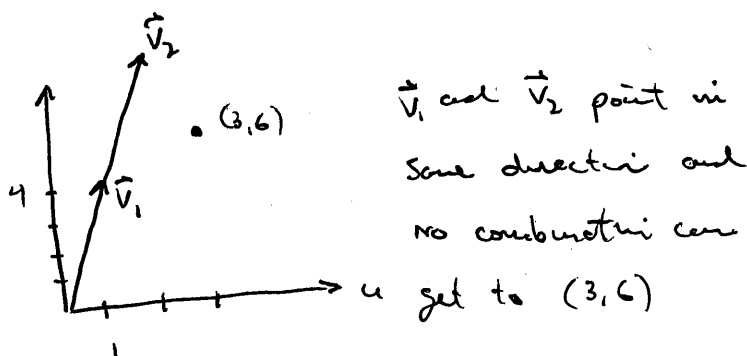 V⃗₂
(3,6)
4
V⃗₁
u
1
V⃗₁ and V⃗₂ point in
same direction and
no combination can
get to (3,6)